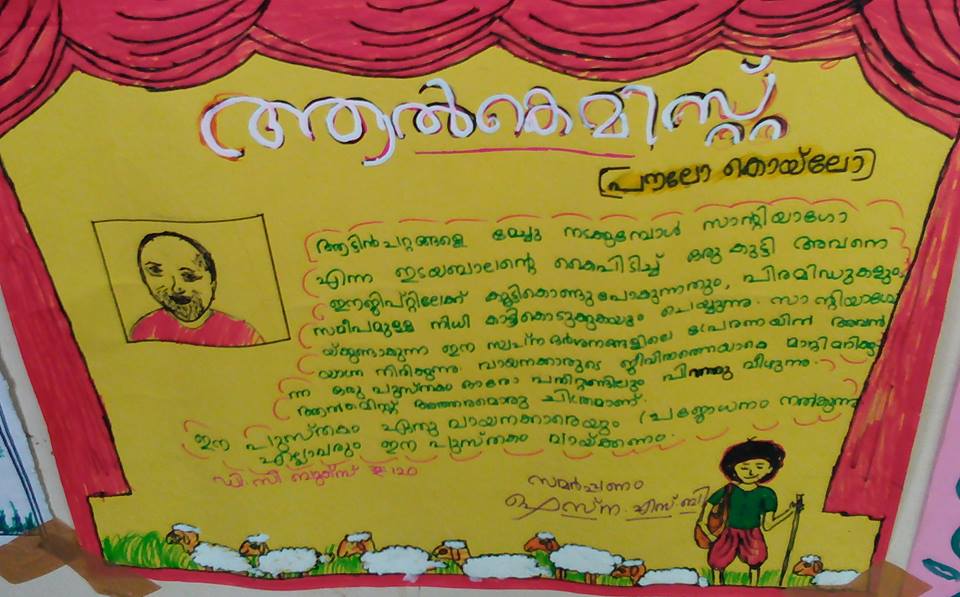 ആൽകെമിസ്റ്റ്
(പൗലോ കൊയ്ലോ)
ആട്ടിൻപറ്റങ്ങളെ മേച്ചു നടക്കുമ്പോൾ സാന്റിയാഗോ
എന്ന ഇടയബാലന്റെ കൈപിടിച്ച് ഒരു കുട്ടി അവനെ
ഈജിപ്റ്റിലേക്ക് കൂട്ടികൊണ്ടുപോകുന്നതും, പിരമിഡുകളും,
സമീപമുള്ള നിധി കാട്ടികൊടുക്കുകയും ചെയ്യുന്നു. സാന്റിയാഗോ
യ്ക്കുണ്ടാകുന്ന ഈ സ്വപ്ന ദർശനങ്ങളിലെ പ്രേരണയിൽ അവൻ
യാത്ര തിരിക്കുന്നു. വായനക്കാരുടെ ജീവിതത്തെയാകെ മാറ്റിമറിക്കു
ന്ന ഒരു പുസ്തകം ഓരോ പതിറ്റാണ്ടിലും പിറന്നു വീഴുന്നു.
ആൽകെമിസ്റ്റ് അത്തരമൊരു ചിത്രമാണ്.
ഈ പുസ്തകം ഏതു വായനക്കാരെയും പ്രചോദനം നൽകുന്നു
എല്ലാവരും ഈ പുസ്തകം വായ്ക്കണം.
ഡി.സി ബുക്സ് ₹ 120
സമർപ്പണം
എസ്.ബി